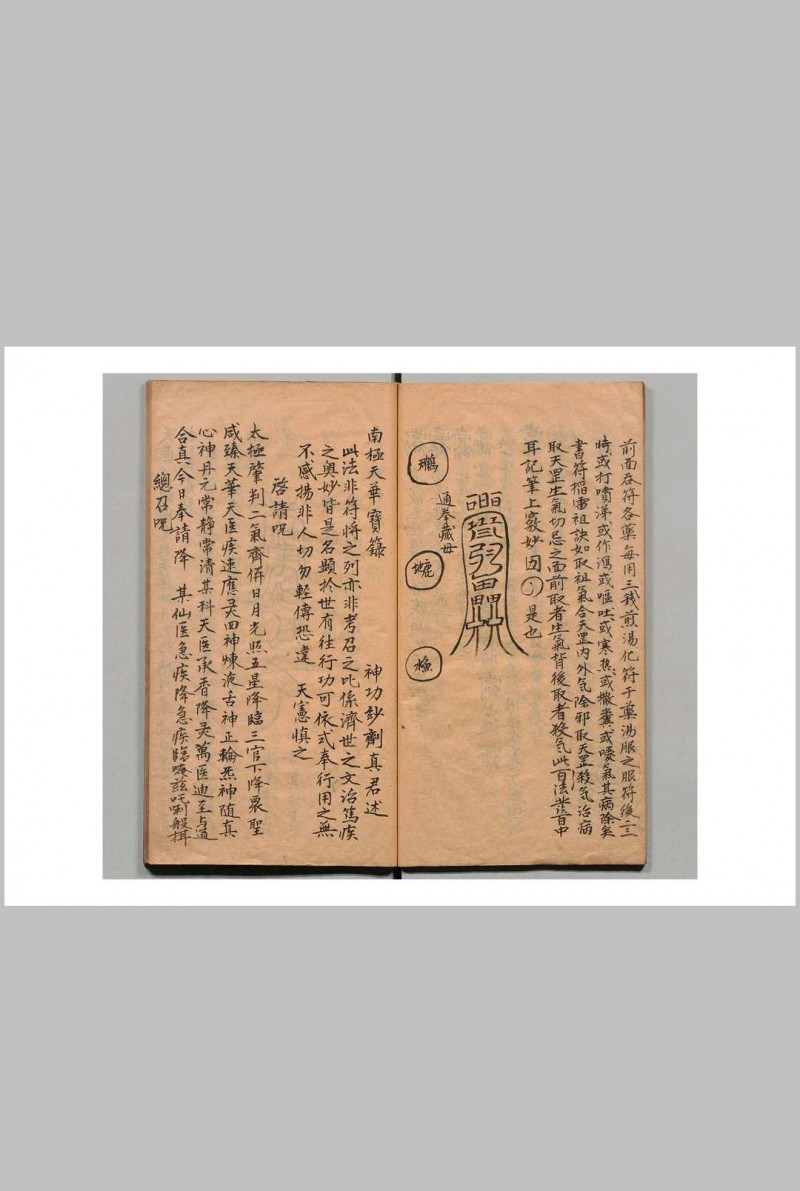 前面吞符各藥每用三錢煎湯化符于藥湯服之服符後二三
時或打噴涕或作瀉或嘔吐或寒热或撒糞或嗳氣其病除矣
書符搯雷祖訣如取祖氣合天罡內外氣除邪取天罡殺氣治病
取天罡生氣切忌之面前取者生氣背後取者殺氣此百法發百中
耳記筆上竅妙因是也
通挙藏毋
南極天華寶籙
神功紗劑真君述
此法非符將之列亦非考召之比係濟世之文治篤疾
之奥妙皆是名顯扵世有往行功可依式奉行用之無
不感揚非人切勿輕傳恐違 天憲慎之
啓請呪
太極肇判二氣齊併日月光照五星降臨三官下降衆聖
咸臻天華天医疾速應灵四神煉液舌神正輪炁神随真
心神丹元常静常清某科天医承香降灵萬医迪至与道
合真今日奉請降 某仙医急疾降急疾臨唵
總召呪